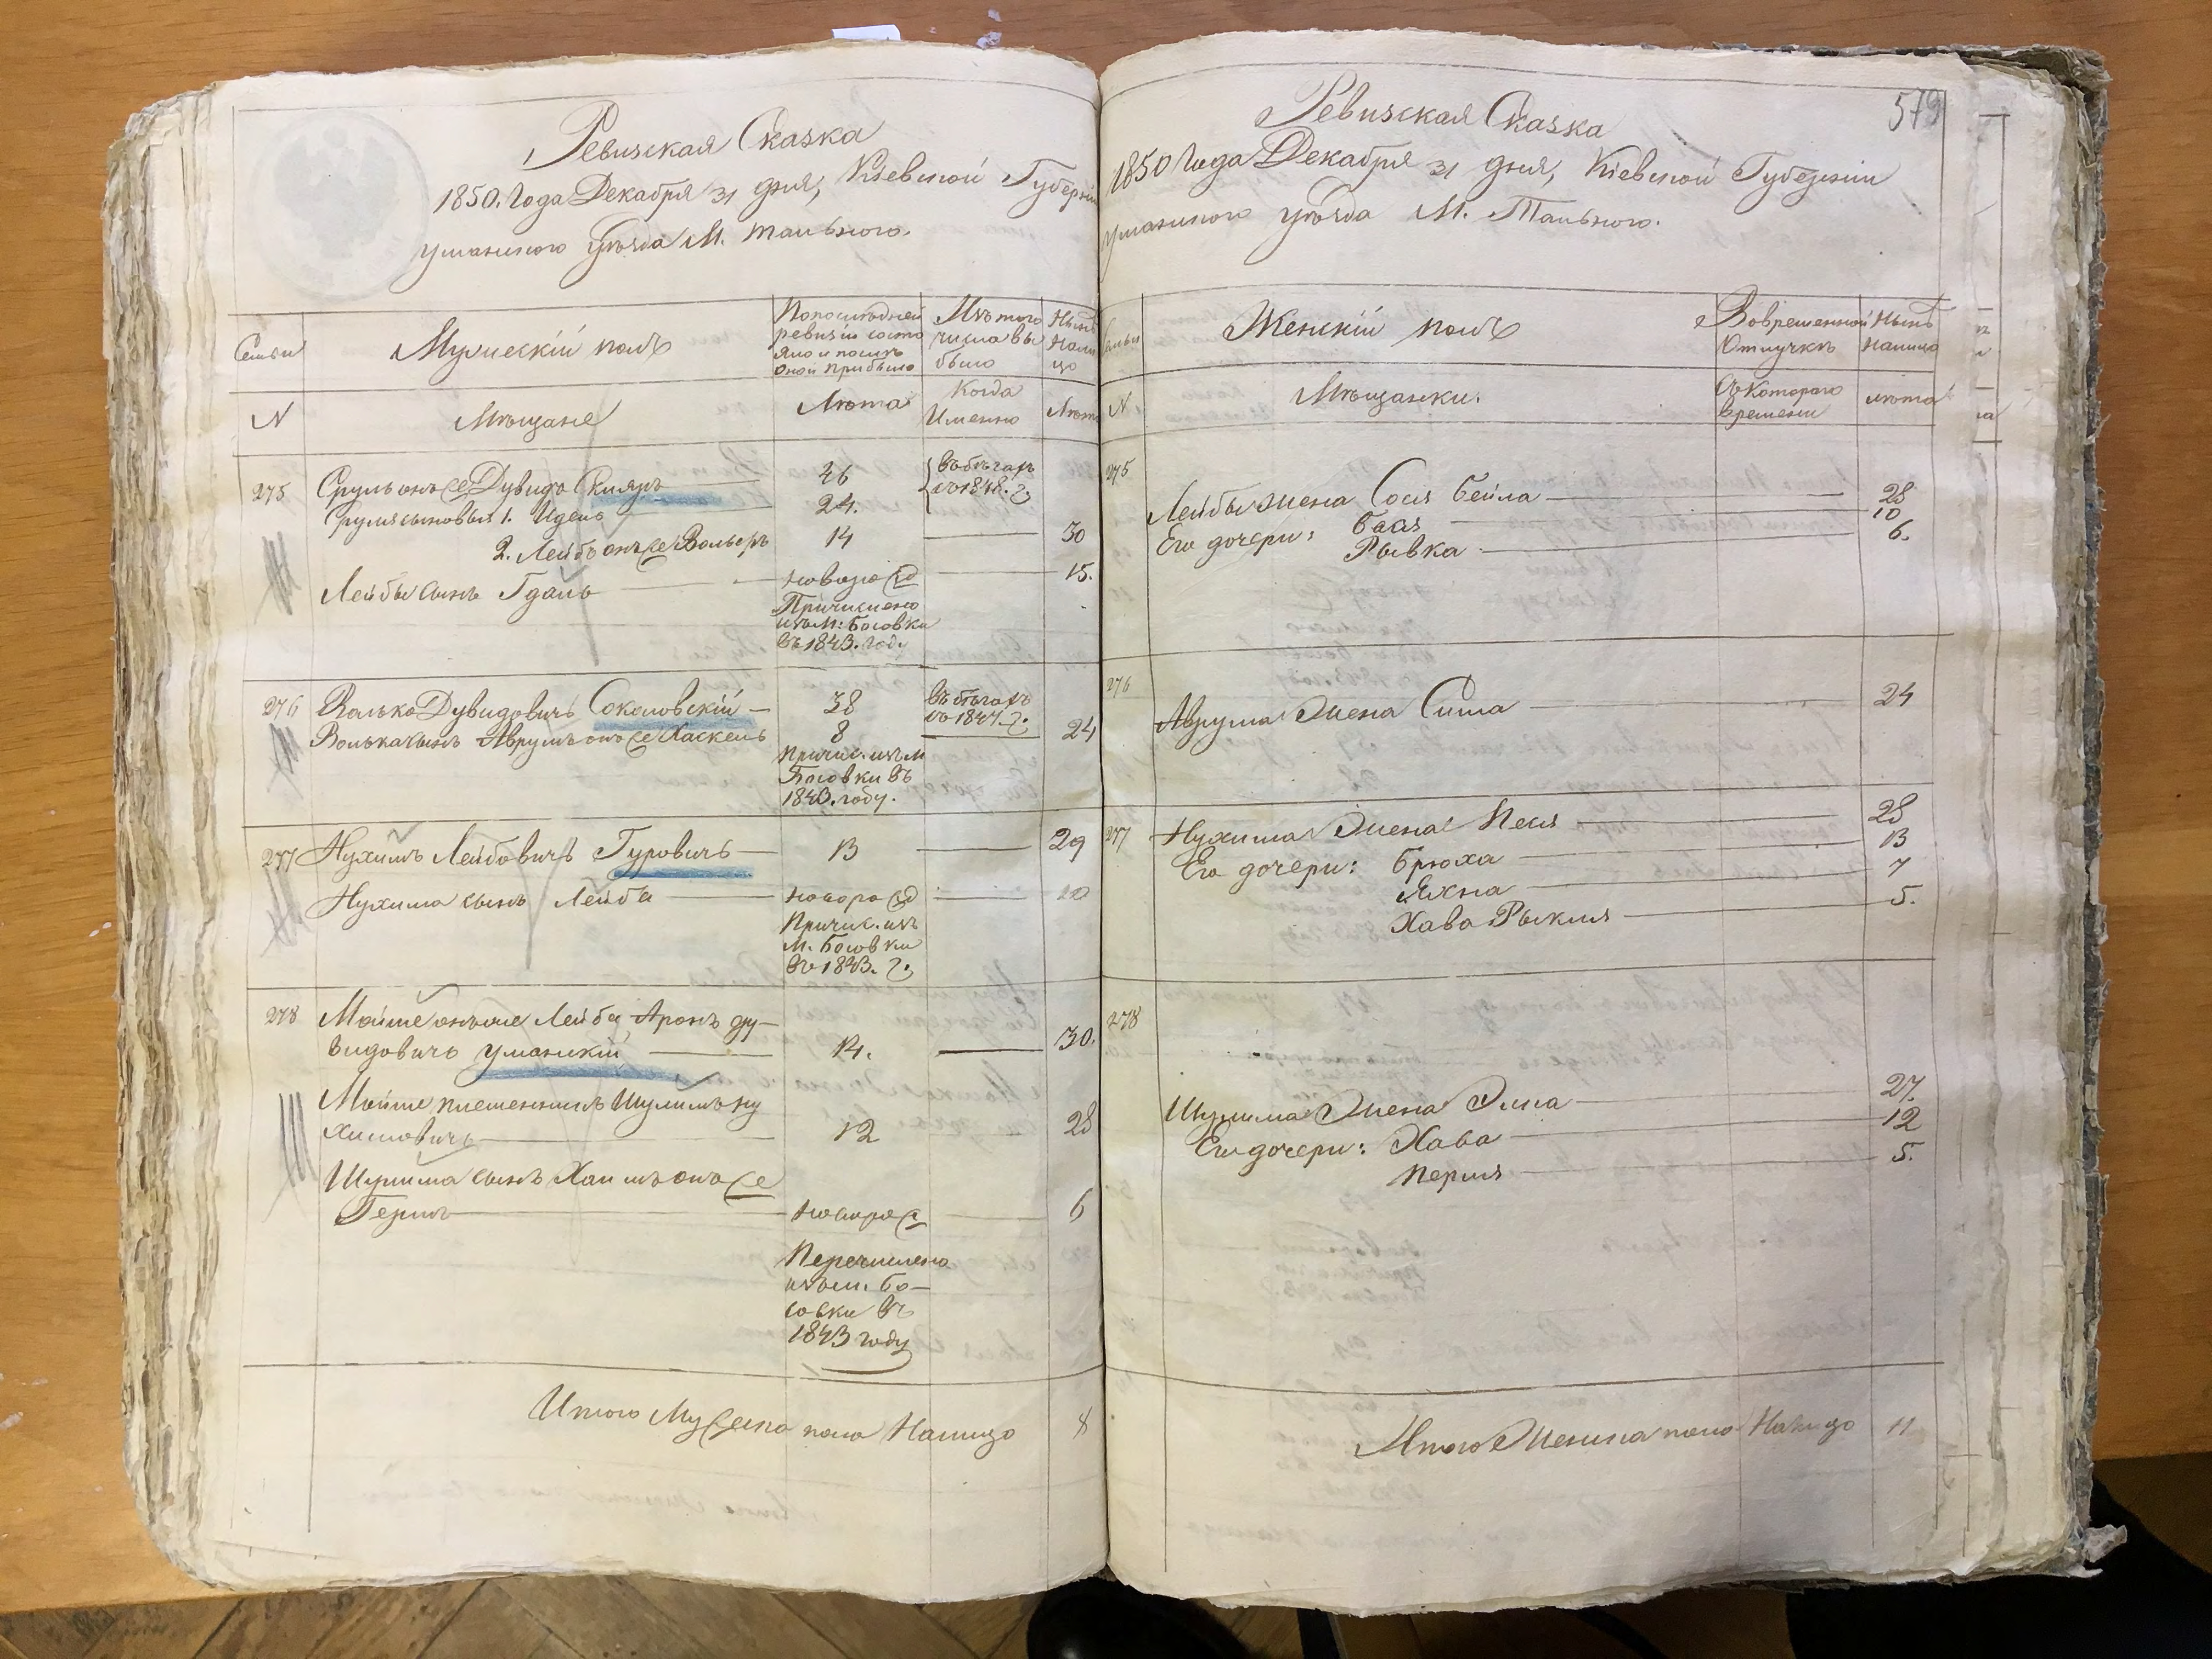 Ревизская Сказка
1850. Года Декабря 31 дня, Кіевской Губерніи
уманского уѣзда М. тального.
Семьи
Мужескій полъ
По последней
ревизіи состо
яло и послѣ
оной прибыло
Изъ того
числа вы
было
Нынѣ
Нали
цо
N
Мѣщане
Лѣта
Когда
Именно
Лѣта
275
Срулъ онъ же Дувидъ Скляръ
46
въ бѣгахъ
съ 1848. г.
Сруля сыновья 1. Идель
24.
2. Лейбъ онъ же Вольфъ
14
30
Лейбы сынъ Гдаль
новорожд
15.
Причислено
изъ М: Босовки
въ 1843. году
276
Волько Дувидовичъ Соколовскій
38
въ бѣгахъ
съ 1847. г.
Волька сынъ Аврумъ онъ же Хаскель
8
24
Причис. изъ м
Босовки въ
1843. году.
277
Нухимъ Лейбовичъ Гуровичъ
13
29
Нухима сынъ Лейба
новорожд
Причис. изъ
М. Босовки
въ 1843. г.
278
Мойше онъ же Лейба Аронъ Ду
видовичъ уманскій
14.
30.
Мойше племенникъ Шулимъ ну
химовичъ
12
28
Шулима сынъ Хаимъ онъ же
Герш
новорож
6
Перечислено
изъ м. Бо
совки въ
1843 году
Итого Мужеска пола Налицо
8
579
Ревизская Сказка
1850 Года Декабря 31 дня, Кіевской Губерніи
уманского уѣзда М. Тального.
Семьи
Женскій полъ
Вовременной
Отлучкѣ
Нынѣ
Налицо
N
Мѣщанки.
Съ котораго
времени
лѣта
275
Лейбы жена Сося Бейла
28
Его дочери: Бася
10
Рывка
6.
276
Аврума жена Сима
24
277
Нухима жена Песя
28
Его дочери: Брюха
13
Яхна
7
Хава Рыкля
5.
278
Шулима жена Элка
27.
Его дочери: Хава
12
Перля
5.
Итого Женска пола Налицо
11